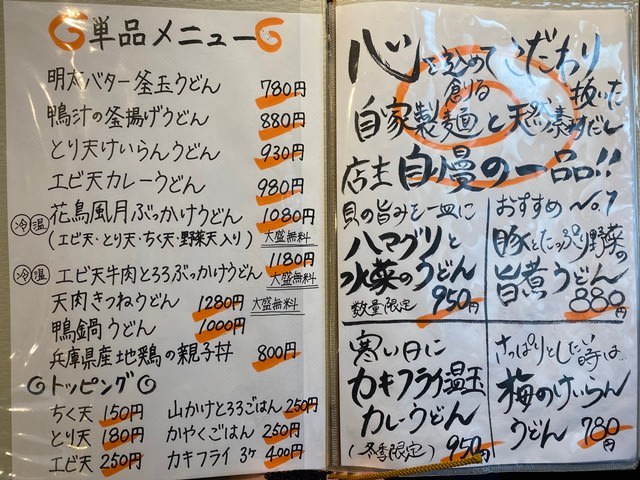 単品メニュー
明太バター釜玉うどん 780円
鴨汁の釜揚げうどん 880円
とり天けいらんうどん 930円
エビ天カレーうどん 980円
冷温 花鳥風月ぶっかけうどん 1080円
(エビ天・とり天・ちく天・野菜天入り) 大盛無料
冷温 エビ天牛肉とろろぶっかけうどん 1180円
大盛無料
天肉きつねうどん 1280円 大盛無料
鴨鍋うどん 1000円
兵庫県産地鶏の親子丼 800円
トッピング
ちく天 150円 山かけとろろごはん 250円
とり天 180円 かやくごはん 250円
エビ天 250円 カキフライ 3ヶ 400円
心を込めてこだわり
創る 抜いた
自家製麺と天然素材だし
店主自慢の一品!!
貝の旨みを一皿に
ハマグリと
水菜のうどん
数量限定 950円
おすすめ No.1
豚とたっぷり野菜の
旨煮うどん
880円
寒い日に
カキフライ温玉
カレーうどん
(冬季限定) 950円
さっぱりとしたい時は…
梅のけいらん
うどん 780円